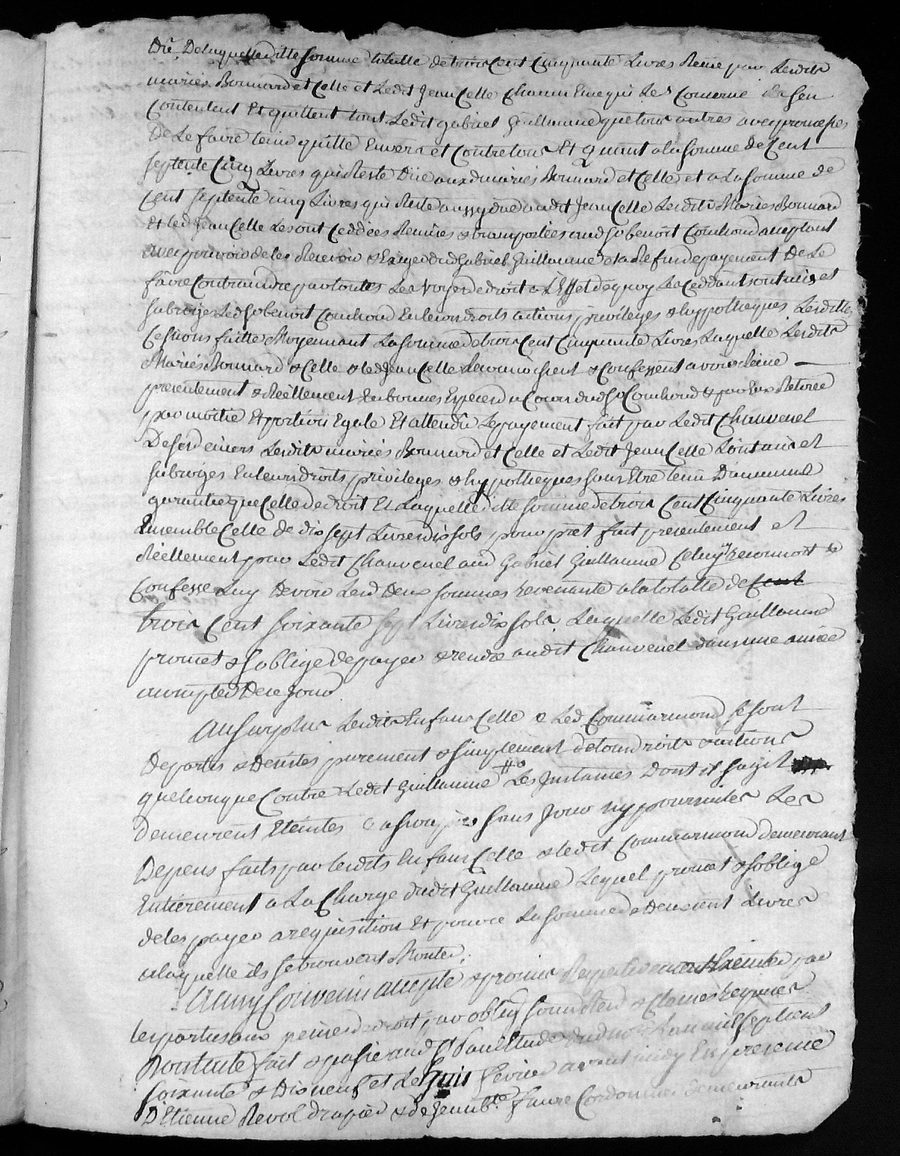 Dte Delaquelle ditte somme totalle de trois Cent Cinquante Livres Reçue par Lesdits
mariés Bonnard et Celle et Ledit Jean Celle Chacun En ce qui Les Concerne
Contentent Et quittent tant Ledit Gabriel Guillaume que tous autres avec promesses
de Le faire tenir quitte Envers et Contre tous Et quant a la somme de Cent
septente Cinq Livres qui Reste Due aux d mariés Bonnard et Celle et a La somme de
Cent septente Cinq Livres qui Reste aussy due audit Jean Celle Lesdits Mariés Bonnard
et Led Jean Celle Les ont Ceddées Remises & transportées aud Sr Benoit Couchoud acceptant
avec pouvoir de les Recevoir & Exiger dud Gabriel Guillaume & a Refus de payement De Le
faire Contraindre par toutes Les voyes de droit a L'Effet de quoy Les Ceddant sont mis et
subrogé Led Sr Benoit Couchoud En leurs droits actions privileges & hyppotheques Lesdittes
Cessions faittes Moyennant La somme de trois Cent Cinquante Livres Laquelle Lesdits
Mariés Bonnard & Celle & led Jean Celle Reconnoissent & Confessent avoir Reçue
presentement & Réellement En bonnes Especes au Cours dud Sr Couchoud & par Eux Retirée
par moitié Et portion Egale Et attendu Le payement fait par Ledit Chauvenel
De ses deniers Lesdits mariés Bonnard et Celle et Ledit Jean Celle L'ont mis et
subrogés En leurs droits privileges & hyppotheques sans Etre tenu D'aucunne
garantie que Celle de droit Et Laquelle ditte somme de trois Cent Cinquante Livres
Ensemble Celle de dix sept Livres dix sols pour prêt fait presentement et
Réellement par Ledit Chauvenel aud Gabriel Guillaume Celuy cy reconnoit &
Confesse Luy Devoir Lesd Deux sommes revenante a la totalle de Cent
trois Cent soixante sept Livres dix sols Laquelle Ledit Guillaume
promet & s'oblige de payer & rendre audit Chauvenel dans une année
a compter De ce jour
Au surplus Lesdits Enfans Celle & Led Commarmond se sont
Departis & Desistés purement & simplement de tous droits & actions
quelconque Contre Ledit Guillaume # Les Instances Dont il s'agit
demeurent Eteintes & assoupies sans pouvoir n'y poursuites Les
Depens faits par lesdits Enfans Celle & ledit Commarmond demeurant
Entierement a La Charge dudit Guillaume Lequel promet & s'oblige
de les payer a requisition Et pour La somme de Deux cent Livres
a laquelle ils se trouvent Monter.
Ainsy Convenu accepté & promis Respectivement par
les parties aux peines de droit par oblig soumissions & Clauses Requises
Dont acte fait & passé aud Etude du no. L'an mil sept cent
soixante & Dix neuf et Le huit fevrier avant midy En presence
D'Etienne Revol drapier & de Jean Bte faure Cordonnier demeurants